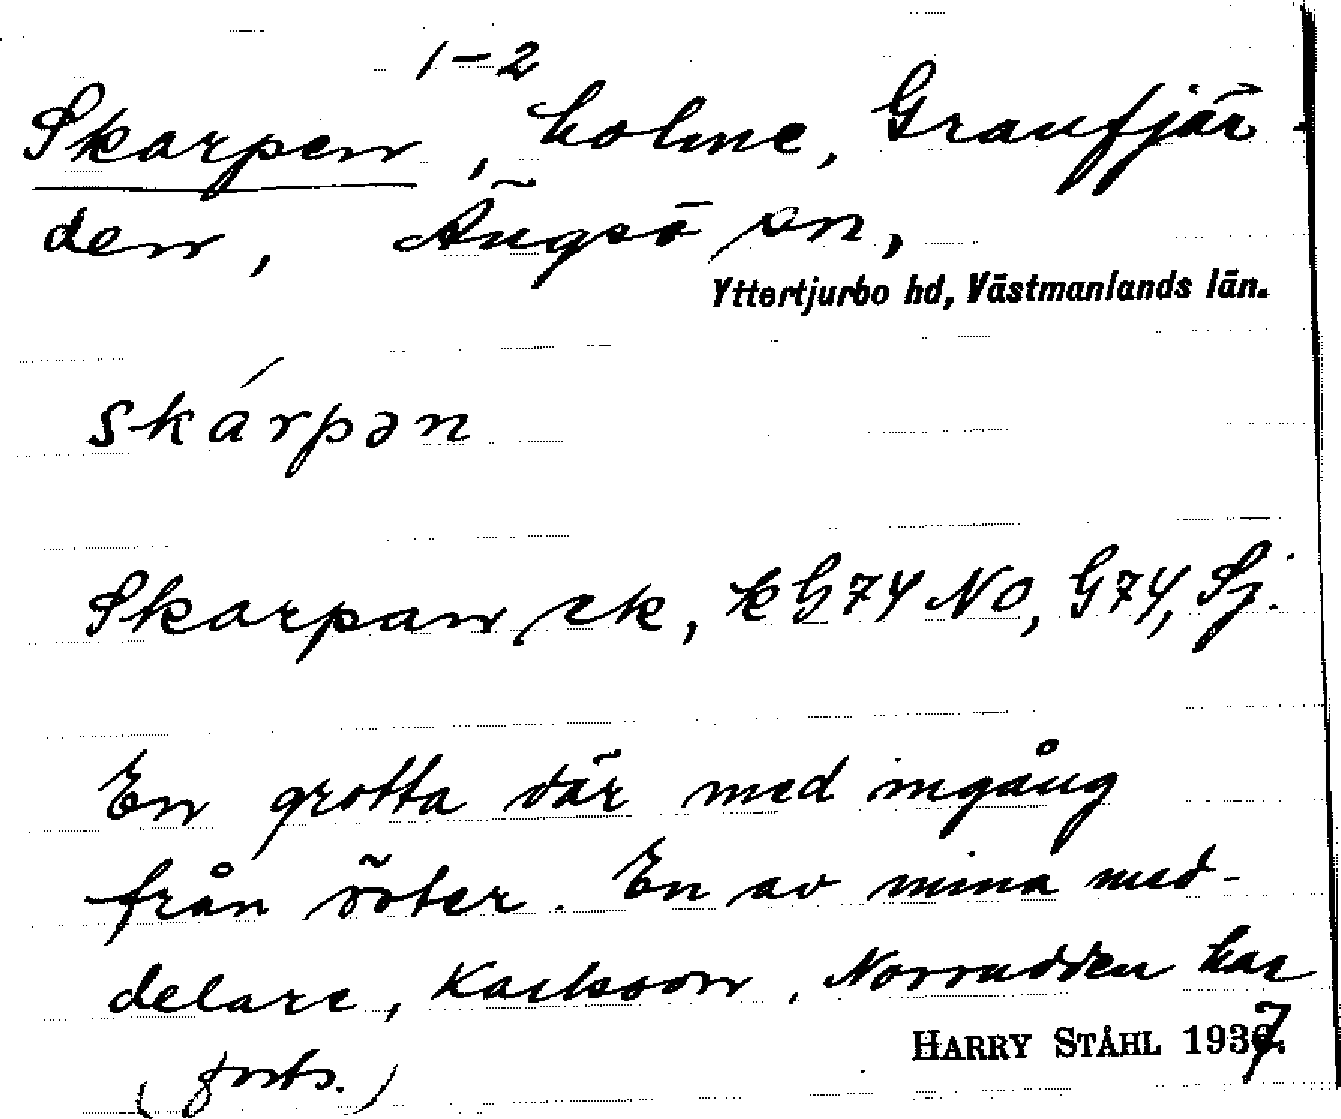 1-2
Skarpen, holme, Granfjär-
den, Ängsö sn,
Yttertjurbo hd, Västmanlands län.
skárpən
Skarpan ek, k G74 NO, G74, Sj.
En grotta där med ingång
från söder. En av mina med-
delare, Karlsson, Norrudden har
(forts.)
HARRY STÅHL 1937.